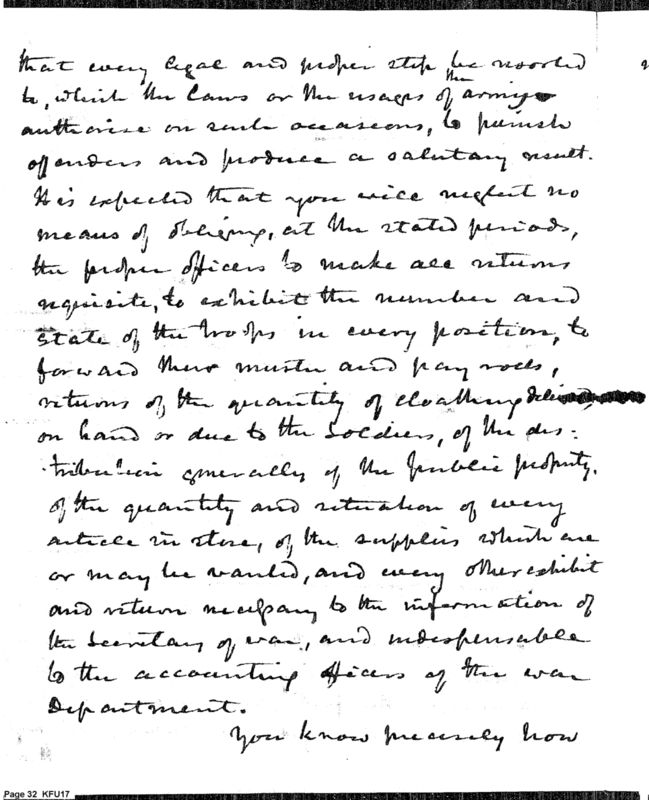 that every legal and proper step be resorted
to, which the Laws or the usages of the army
authorise on such occasions, to punish
offenders and produce a salutary result.
It is expected that you will neglect no
means of obliging, at the stated periods,
the proper officers to make all returns
requisite, to exhibit the number and
state of the troops in every position, to
forward their muster and pay rolls,
returns of the quantity of cloathing
on hand or due to the soldiers, of the dis:
tribution generally of the public property.
of the quantity and situation of every
article in store, of the supplies which are
or may be wanted, and every other exhibit
and return necessary to the information of
the Secretary of war, and indespensable
to the accounting officers of the war
Department.
You know precisely how
Page 32 KFU17